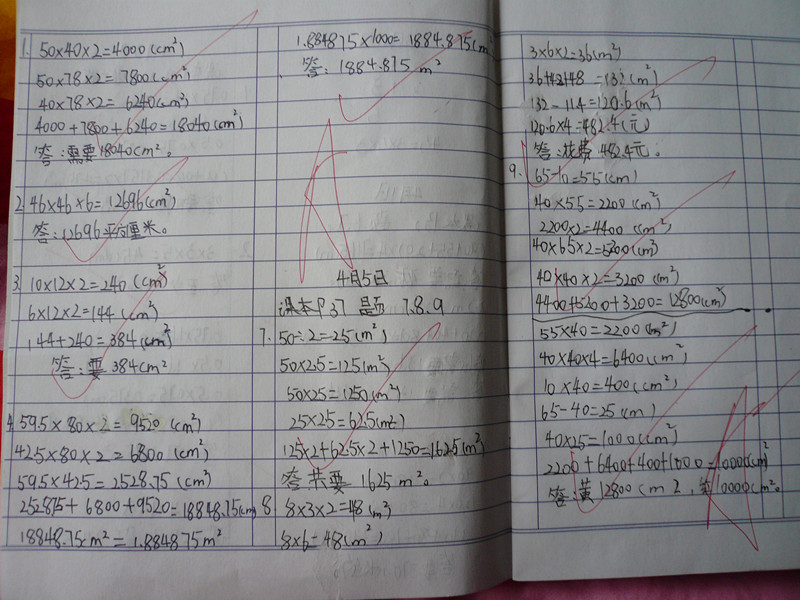 1. 50×40×2=4000(cm²)
50×78×2=7800(cm²)
40×78×2=6240(cm²)
4000+7800+6240=18040(cm²)
答:需要18040cm²。
2. 46×46×6=12696(cm²)
答:12696平方厘米。
3. 10×12×2=240(cm²)
6×12×2=144(cm²)
144+240=384(cm²)
答:要384cm²
4. 59.5×80×2=9520(cm²)
42.5×80×2=6800(cm²)
59.5×42.5=2528.75(cm²)
2528.75+6800+9520=18848.75(cm²)
18848.75cm²=1.884875m²
1.884875×1000=1884.875(cm
答:1884.875m²
4月5日
课本P37 题 7.8.9
7. 50÷2=25(m²)
50×2.5=125(m²)
50×25=1250(m²)
25×2.5=62.5(m²)
125×2+62.5×2+1250=1625(m²)
答:共要1625m²。
8. 8×3×2=48(m²)
8×6=48(m²)
3×6×2=36(m²)
36+48+48=132(m²)
132-11.4=120.6(m²)
120.6×4=482.4(元)
答:花费482.4元。
9. 65-10=55(cm)
40×55=2200(cm²)
2200×2=4400(cm²)
40×65×2=5200(cm²)
40×40×2=3200(cm²)
4400+5200+3200=12800(cm²)
55×40=2200(cm²)
40×40×4=6400(cm²)
10×40=400(cm²)
65-40=25(cm)
40×25=1000(cm²)
2200+6400+400+1000=10000(cm²)
答:黄12800cm2,红10000cm²。